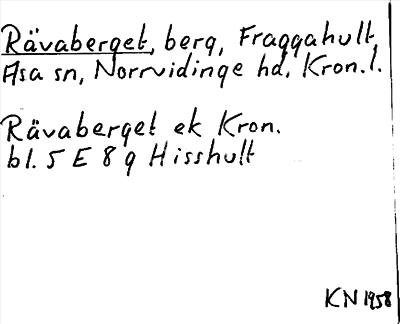 Rävaberget, berg, Fraggahult,
Asa sn, Norrvidinge hd, Kron.l.
Rävaberget ek Kron.
bl. 5 E 8 g Hisshult
KN 1958